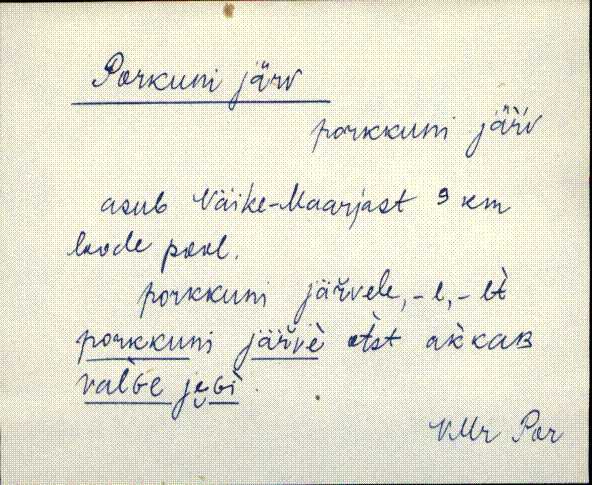 Porkuni järv
porkkuni järv
asub Väike-Maarjast 9 km
loode pool.
porkkuni järvele, -l, -lt
porkkuni järve otst akkab
valge jegi.
VMr Por